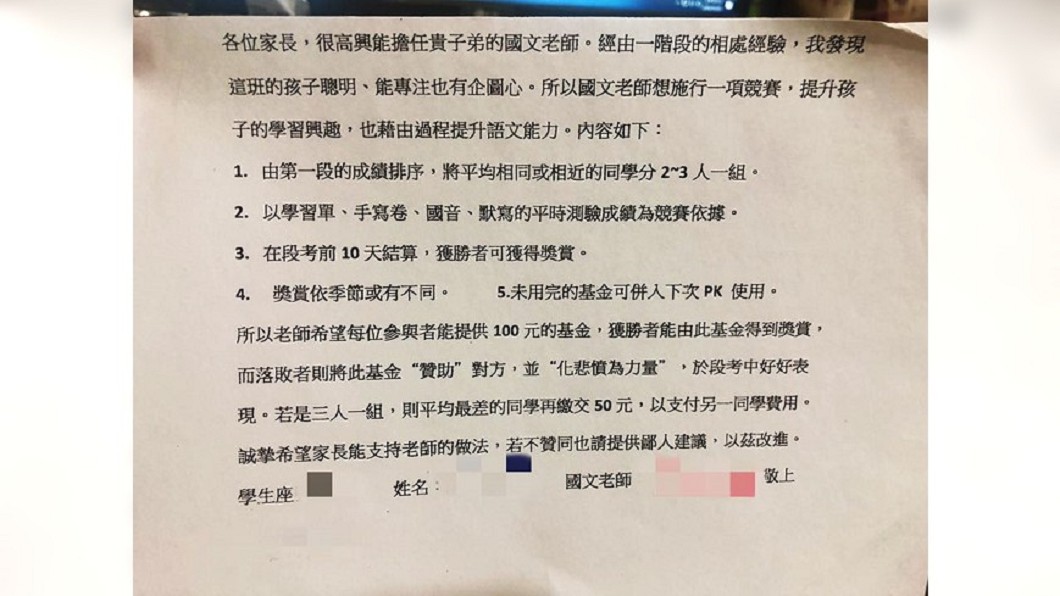 各位家長，很高興能擔任貴子弟的國文老師。經由一階段的相處經驗，我發現
這班的孩子聰明、能專注也有企圖心。所以國文老師想施行一項競賽，提升孩
子的學習興趣，也藉由過程提升語文能力。內容如下：
1. 由第一段的成績排序，將平均相同或相近的同學分 2~3 人一組。
2. 以學習單、手寫卷、國音、默寫的平時測驗成績為競賽依據。
3. 在段考前 10 天結算，獲勝者可獲得獎賞。
4. 獎賞依季節或有不同。 5.未用完的基金可併入下次 PK 使用。
所以老師希望每位參與者能提供 100 元的基金，獲勝者能由此基金得到獎賞，
而落敗者則將此基金“贊助”對方，並“化悲憤為力量”，於段考中好好表
現。若是三人一組，則平均最差的同學再繳交 50 元，以支付另一同學費用。
誠摯希望家長能支持老師的做法，若不贊同也請提供鄙人建議，以茲改進。
學生座 姓名： 國文老師 敬上